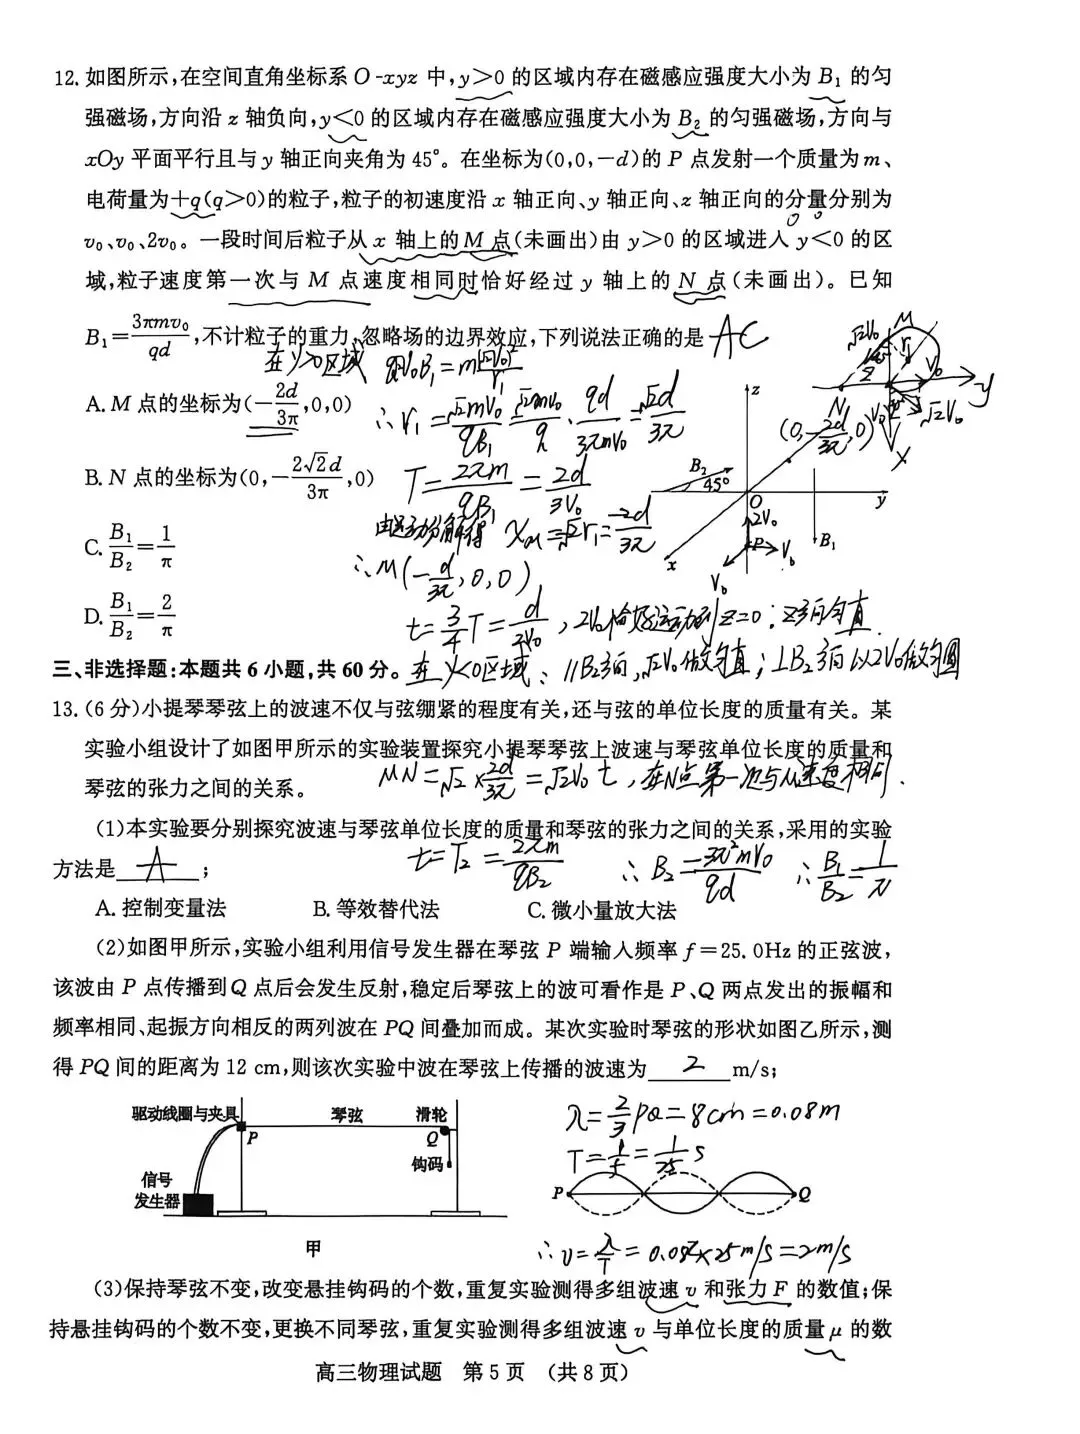 12. 如图所示,在空间直角坐标系 O-xyz 中,y>0 的区域内存在磁感应强度大小为 B₁ 的匀
强磁场,方向沿 z 轴负向,y<0 的区域内存在磁感应强度大小为 B₂ 的匀强磁场,方向与
xOy 平面平行且与 y 轴正向夹角为 45°。在坐标为(0,0,-d)的 P 点发射一个质量为 m、
电荷量为+q(q>0)的粒子,粒子的初速度沿 x 轴正向、y 轴正向、z 轴正向的分量分别为
v₀、v₀、2v₀。一段时间后粒子从 x 轴上的 M 点(未画出)由 y>0 的区域进入 y<0 的区
域,粒子速度第一次与 M 点速度相同时恰好经过 y 轴上的 N 点(未画出)。已知
B₁=3πmv₀/qd,不计粒子的重力,忽略场的边界效应,下列说法正确的是 AC
在y>0区域 q√2V₀B₁=m(√2V₀)²/r₁
A. M 点的坐标为(-2d/3π,0,0)
∴r₁=√2mV₀/qB₁ √2mV₀/q·qd/3πmV₀=√2d/3π
B. N 点的坐标为(0,-2√2d/3π,0)
T=2πm/qB₁=2d/3V₀
(0,-2d/3π,0)
C. B₁/B₂=1/π
由运动分解得 Xm=√2r₁=-2d/3π
∴M(-d/3π,0,0)
D. B₁/B₂=2/π
t=3/4T=d/2V₀,2V₀恰好运动到z=0:z方向匀直
z
B₂
45°
O
y
2V₀
P
V₀
B₁
x
V₀
M
√2V₀
r₁
V₀
y
N
√2V₀
x
三、非选择题:本题共 6 小题,共 60 分。
在y<0区域、//B₂方向,√2V₀做匀直;⊥B₂方向以2V₀做匀圆
13.(6 分)小提琴琴弦上的波速不仅与弦绷紧的程度有关,还与弦的单位长度的质量有关。某
实验小组设计了如图甲所示的实验装置探究小提琴琴弦上波速与琴弦单位长度的质量和
琴弦的张力之间的关系。
MN=√2×2d/3π=√2V₀t,在N点第一次与M速度相同.
(1)本实验要分别探究波速与琴弦单位长度的质量和琴弦的张力之间的关系,采用的实验
方法是 A ;
t=T₂=2πm/qB₂ ∴B₂=3π²mV₀/qd ∴B₁/B₂=1/π
A. 控制变量法 B. 等效替代法 C. 微小量放大法
(2)如图甲所示,实验小组利用信号发生器在琴弦 P 端输入频率 f=25.0Hz 的正弦波,
该波由 P 点传播到 Q 点后会发生反射,稳定后琴弦上的波可看作是 P、Q 两点发出的振幅和
频率相同、起振方向相反的两列波在 PQ 间叠加而成。某次实验时琴弦的形状如图乙所示,测
得 PQ 间的距离为 12 cm,则该次实验中波在琴弦上传播的波速为 2 m/s;
驱动线圈与夹具 琴弦 滑轮
P Q
钩码
信号
发生器
甲
λ=2/3PQ=8cm=0.08m
T=1/f=1/25 s
P Q
∴v=λ/T=0.08×25m/s=2m/s
(3)保持琴弦不变,改变悬挂钩码的个数,重复实验测得多组波速 v 和张力 F 的数值;保
持悬挂钩码的个数不变,更换不同琴弦,重复实验测得多组波速 v 与单位长度的质量 μ 的数
高三物理试题 第 5 页 (共 8 页)